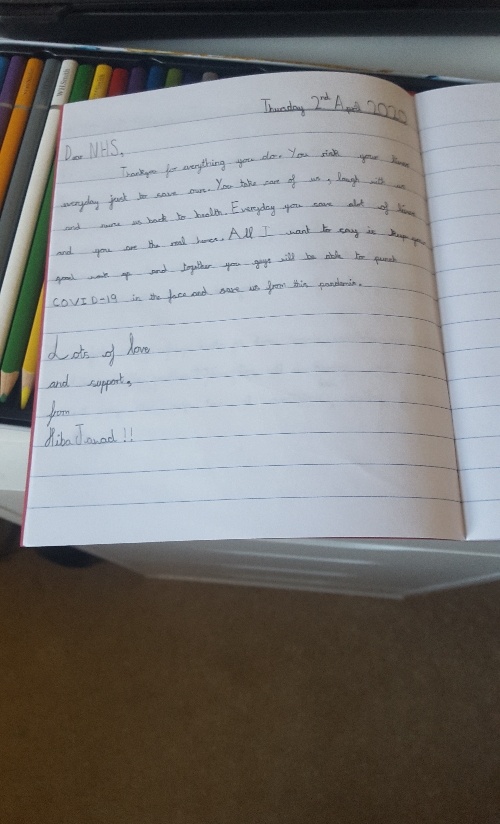 Thursday 2nd April 2020
Dear NHS,
Thankyou for everything you do. You risk your lives
everyday just to save ours. You take care of us, laugh with us
and nurse us back to health. Everyday you save alot of lives
and you are the real heroes. All I want to say is keep your
good work up and together you guys will be able to punch
COVID-19 in the face and save us from this pandemic.
Lots of love
and support,
from
Hiba Jawad!!